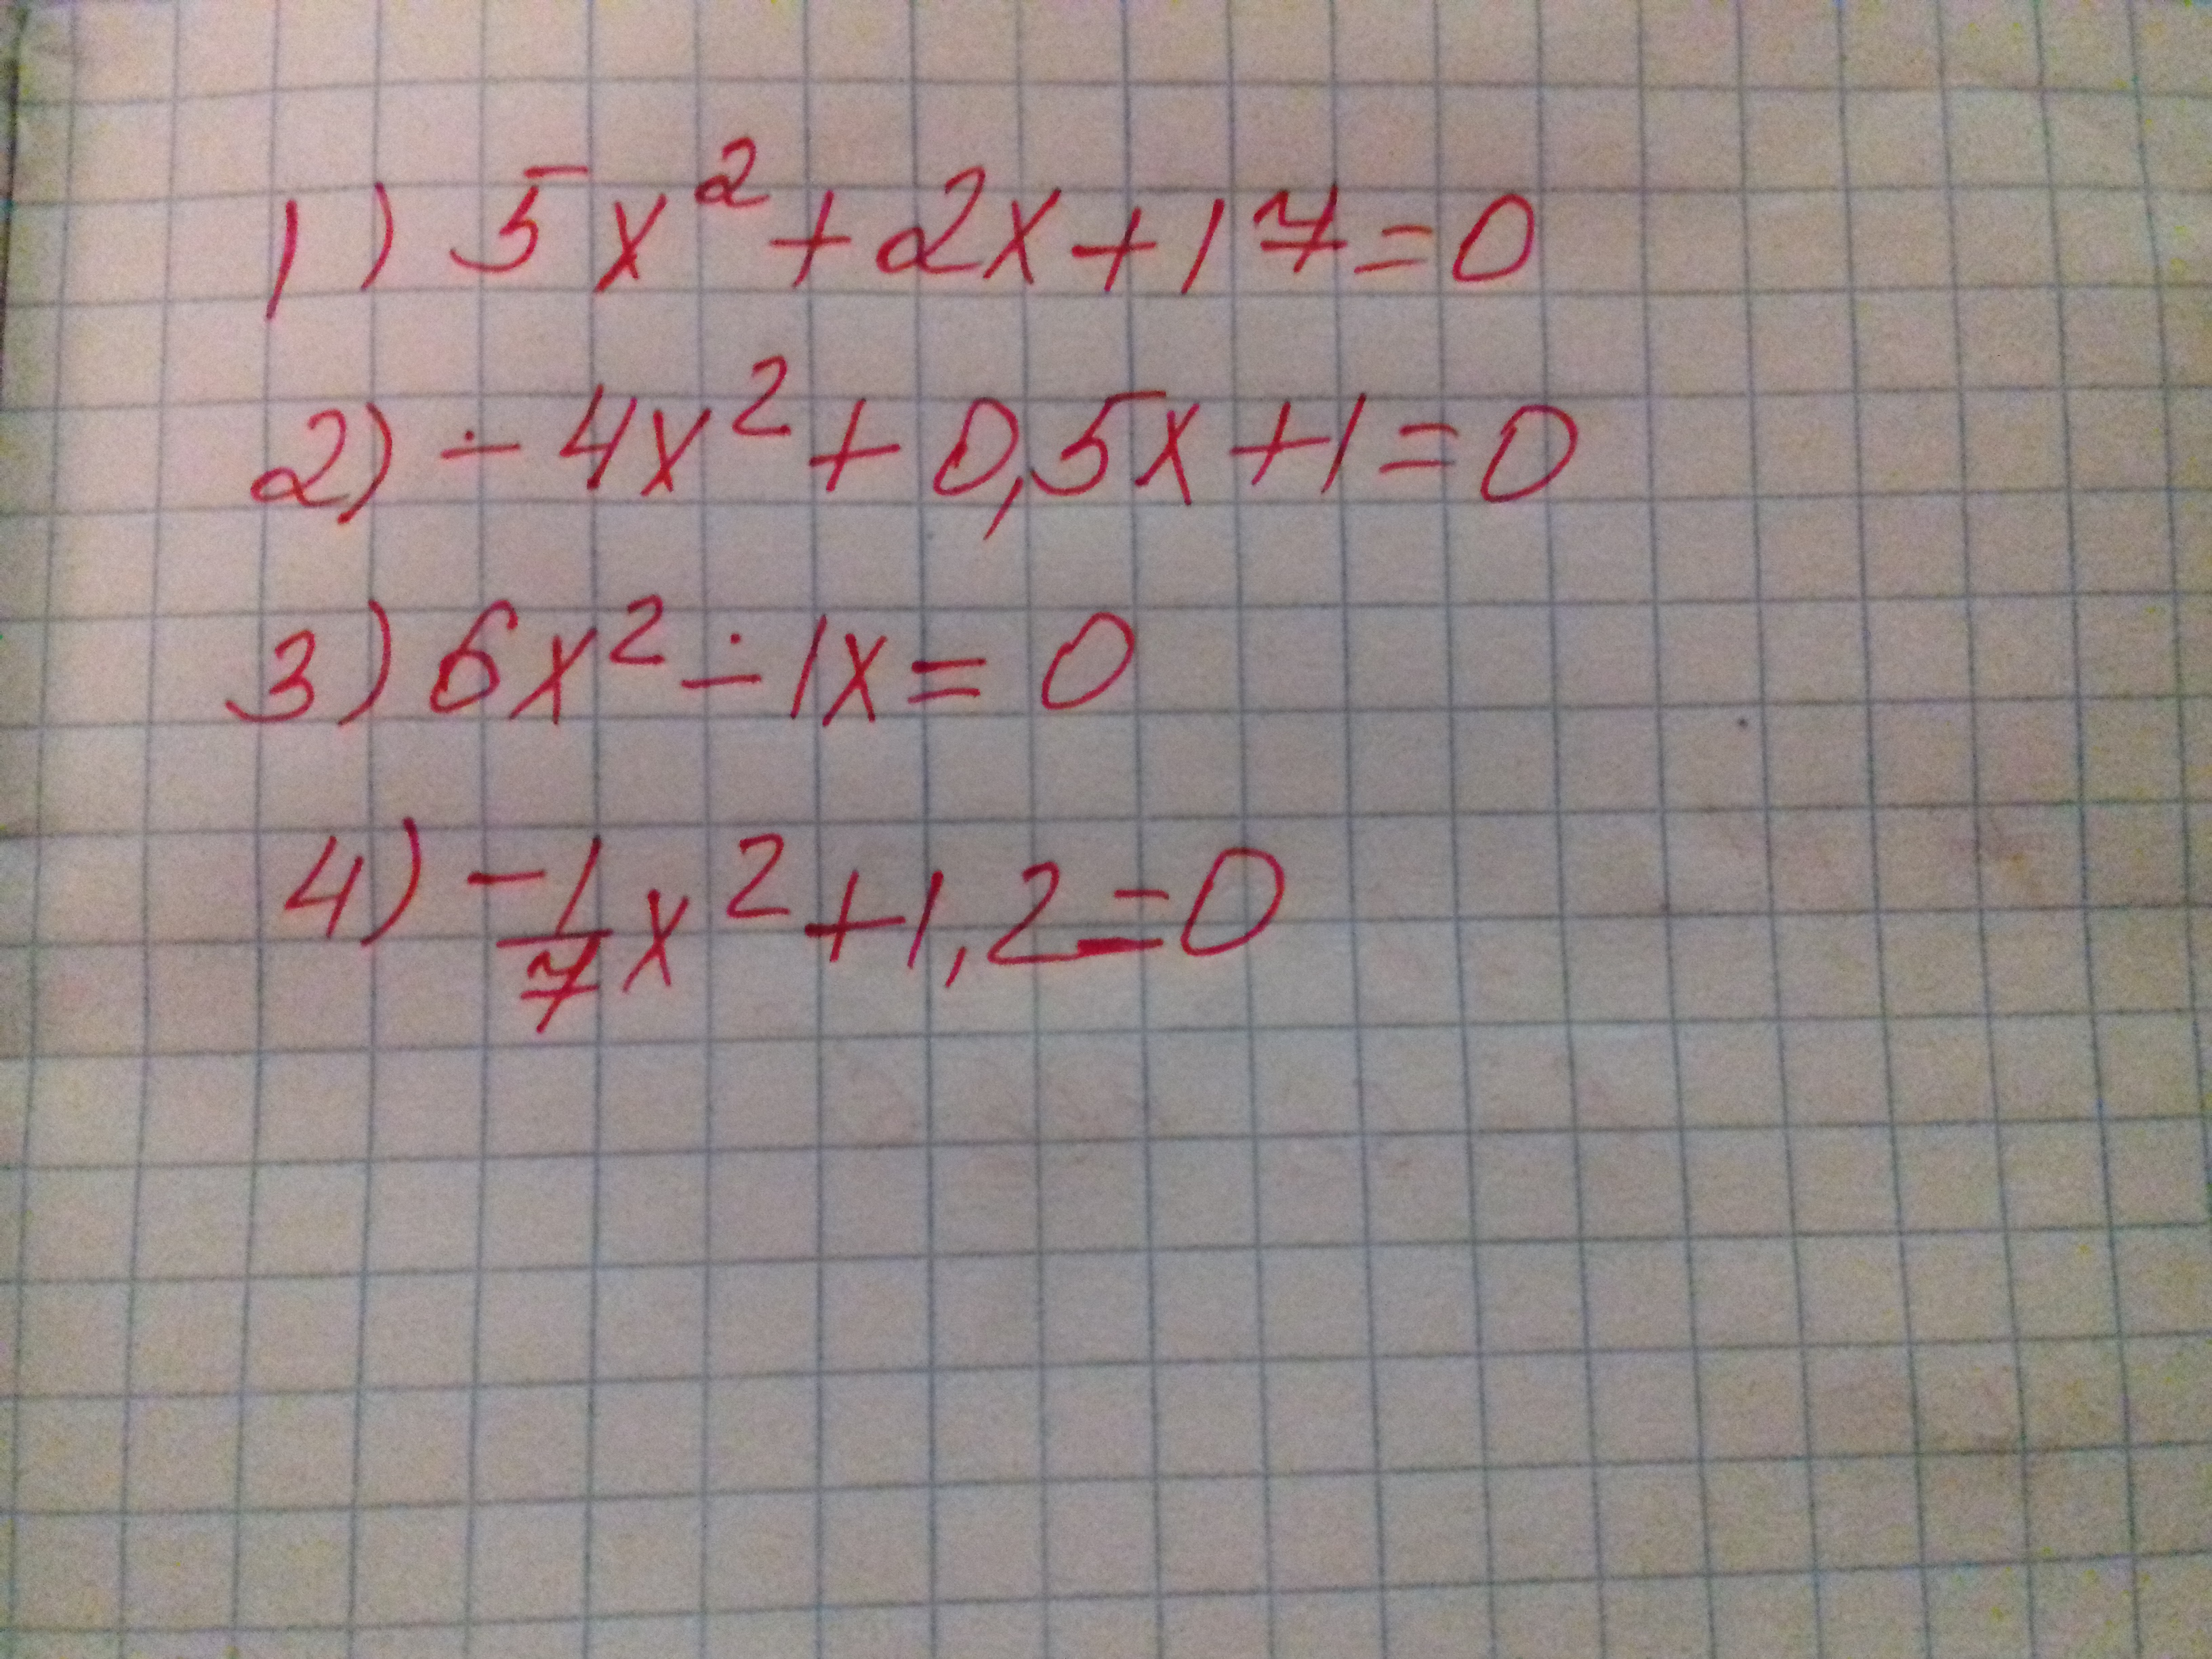 1) 5x² + 2x + 17 = 0
2) ÷ 4x² + 0,5x + 1 = 0
3) 6x² ÷ 1x = 0
4) -1/7 x² + 1,2 = 0